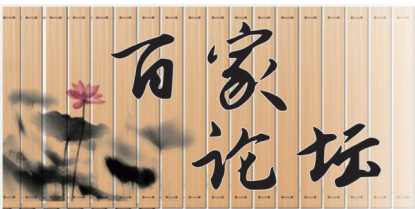 百家
论坛